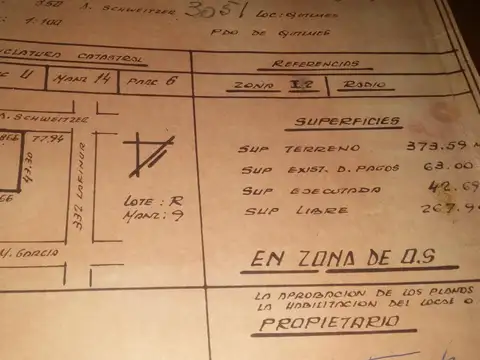 A. SCHWEITZER 3051 LOC: QUILMES
1:100
PDO DE QUILMES
NCLATURA CATASTRAL
REFERENCIAS
U MANZ 14 PARC 6
ZONA I2 RADIO
A. SCHWEITZER
SUPERFICIES
77.94
SUP TERRENO 373.59 M
SUP EXIST. D. PAGOS 63.00
43.30
332 LAFINUR
LOTE: R
SUP EJECUTADA 42.69
MANZ: 9
SUP LIBRE 267.9
M. GARCIA
EN ZONA DE O.S
LA APROBACION DE LOS PLANOS
LA HABILITACION DEL LOCAL O
PROPIETARIO